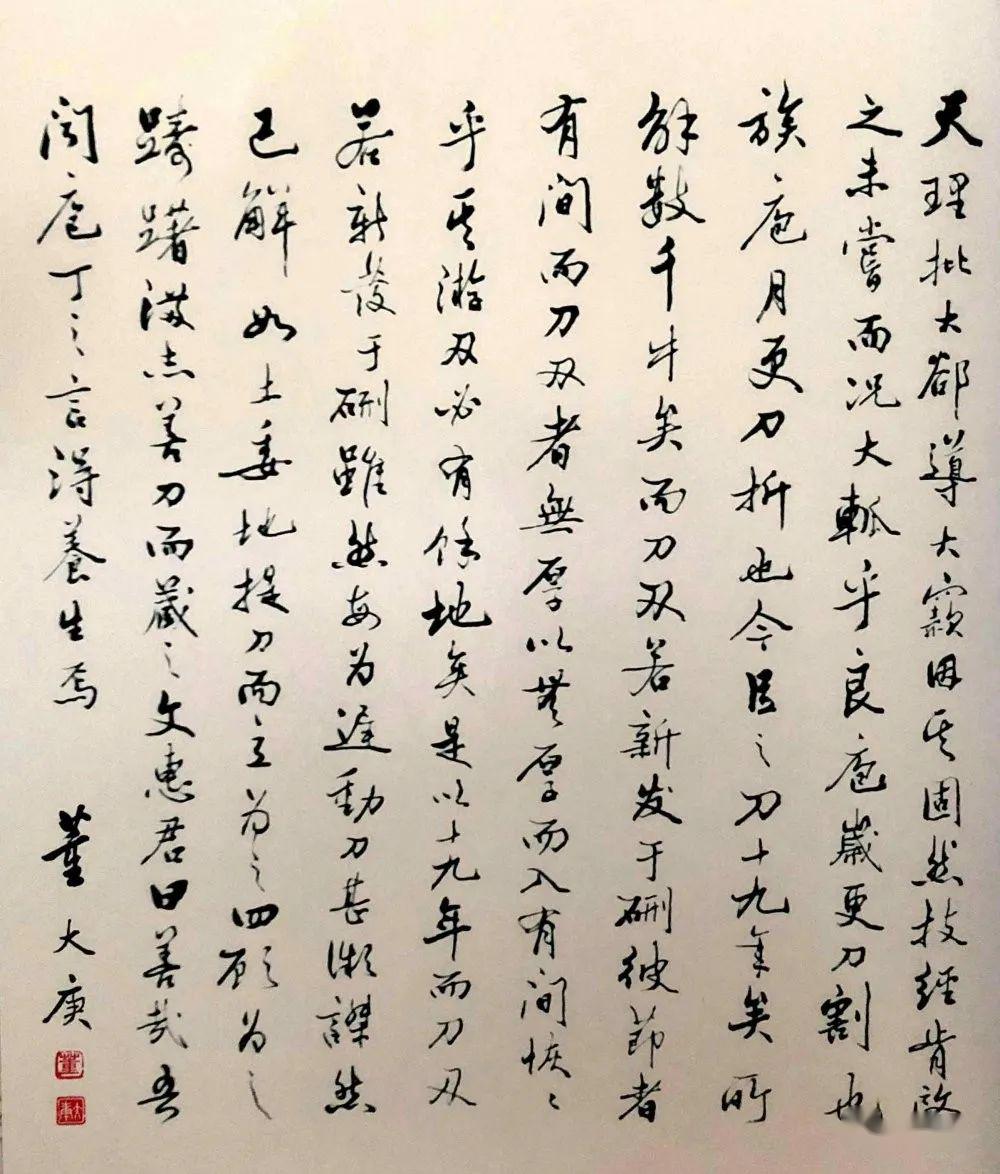 天理批大郤導大窾因其固然技經肯綮
之未嘗而况大軱乎良庖歲更刀割也
族庖月更刀折也今臣之刀十九年矣所
解数千牛矣而刀刃若新发于硎彼节者
有间而刀刃者無厚以無厚而入有间恢〻
乎其游刃必有餘地矣是以十九年而刀刃
若新發于硎雖然每为遲動刀甚微謋然
已解如土委地提刀而立为之四顾为之
躊躇满志善刀而藏之文惠君曰善哉吾
闻庖丁之言得養生焉
董大庚